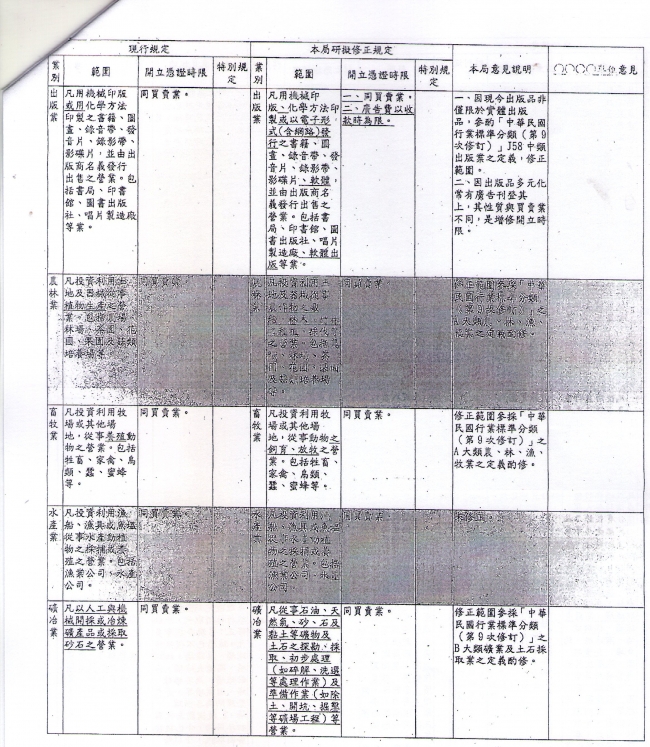 現行規定
本局研擬修正規定
業別
範圍
開立憑證時限
特別規定
業別
範圍
開立憑證時限
特別規定
本局意見說明
意見
出版業
凡用機械印版
或用化學方法
印製之書籍、圖
畫、錄音帶、發
音片、錄影帶、
影碟片，並由出
版商名義發行
出售之營業。包
括書局、印書
館、圖書出版
社、唱片製造廠
等業。
同買賣業。
出版業
凡用機械印
版、化學方法印
製或以電子形
式(含網路)發
行之書籍、圖
畫、錄音帶、發
音片、錄影帶、
影碟片、軟體，
並由出版商名
義發行出售之
營業。包括書
局、印書館、圖
書出版社、唱片
製造廠、軟體出
版等業。
一、同買賣業。
二、廣告費以收
款時為限。
一、因現今出版品非
僅限於實體出版
品，參酌「中華民國
行業標準分類（第9
次修訂）」J58中類
出版業之定義，修正
範圍。
二、因出版品多元化
常有廣告刊登其
上，其性質與買賣業
不同，是增修開立時
限。
農林業
凡投資利用土
地及器械從事
植物生產之營
業。包括農場、
林場、茶園、花
園、果園及菇類
培養場等。
同買賣業。
農林業
凡投資利用土
地及器械從事
之營業。包括農
園、花園、果園
及菇類培養場
等。
同買賣業。
修正範圍參採「中華
民國行業標準分類
（第9次修訂）」之
A大類農、林、漁、
牧業之定義酌修。
畜牧業
凡投資利用牧
場或其他場
地，從事養殖動
物之營業。包括
牲畜、家禽、鳥
類、蠶、蜜蜂
等。
同買賣業。
畜牧業
凡投資利用牧
場或其他場
地，從事動物之
飼育、放牧之營
業。包括牲畜、
家禽、鳥類、
蠶、蜜蜂等。
同買賣業。
修正範圍參採「中華
民國行業標準分類
（第9次修訂）」之
A大類農、林、漁、
牧業之定義酌修。
水產業
凡投資利用漁
船、漁具或魚塭
從事水產動植
物之採捕或養
殖之營業。包括
漁業公司、水產
公司。
同買賣業。
水產業
凡投資利用漁
船、漁具或魚塭
從事水產動植
物之採捕或養
殖之營業。包括
漁業公司、水產
公司。
同買賣業
未修正。
礦冶業
凡以人工與機
械開採或冶煉
礦產品或採取
砂石之營業。
同買賣業。
礦冶業
凡從事石油、天
然氣、砂、石及
黏土等礦物及
土石之探勘、採
取、初步處理
（如碎解、洗選
等處理作業）及
準備作業（如除
土、開坑、掘鑿
等礦場工程）等
營業。
同買賣業。
修正範圍參採「中華
民國行業標準分類
（第9次修訂）」之
B大類礦業及土石採
取業之定義酌修。